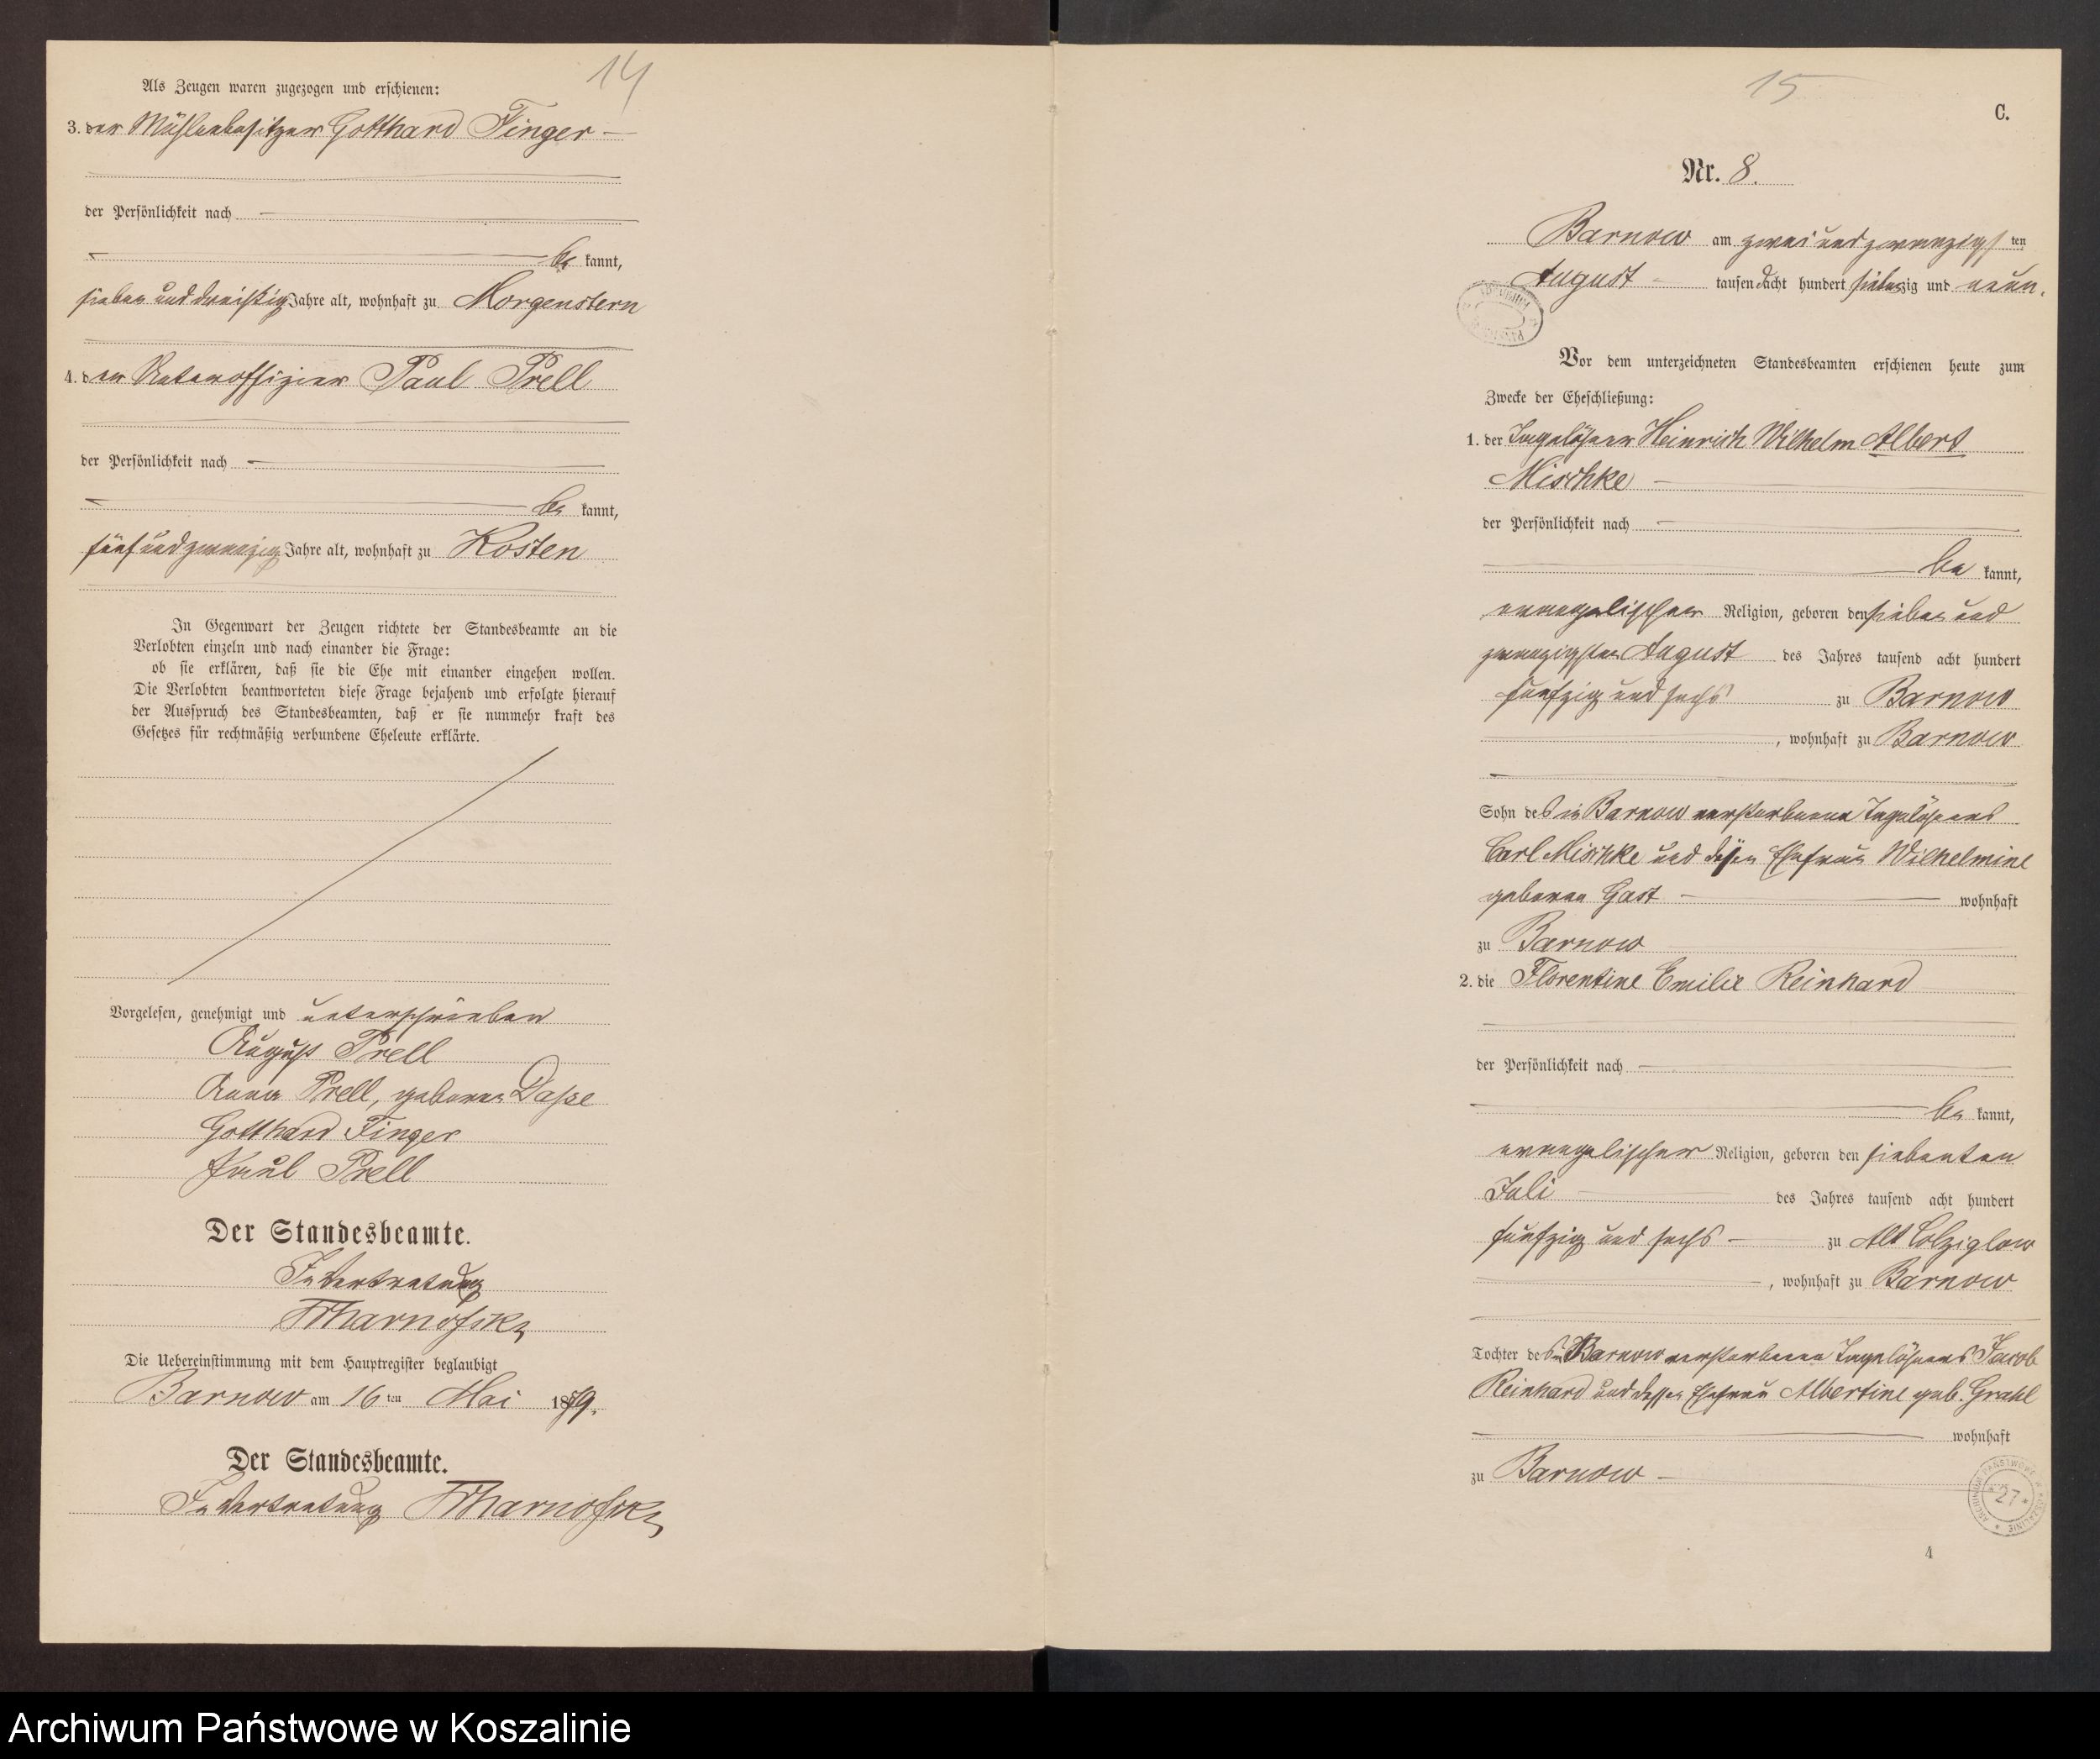 14
Als Zeugen waren zugezogen und erschienen:
3. der Mühlenbesitzer Gotthard Finger
der Persönlichkeit nach
be kannt,
sieben und dreißig Jahre alt, wohnhaft zu Morgenstern
4. der Unteroffizier Paul Prell
der Persönlichkeit nach
be kannt,
fünf und zwanzig Jahre alt, wohnhaft zu Kosten
In Gegenwart der Zeugen richtete der Standesbeamte an die
Verlobten einzeln und nach einander die Frage:
ob sie erklären, daß sie die Ehe mit einander eingehen wollen.
Die Verlobten beantworteten diese Frage bejahend und erfolgte hierauf
der Ausspruch des Standesbeamten, daß er sie nunmehr kraft des
Gesetzes für rechtmäßig verbundene Eheleute erklärte.
Vorgelesen, genehmigt und unterschrieben
August Prell
Anna Prell, geborene Dasse
Gotthard Finger
Paul Prell
Der Standesbeamte.
In Vertretung
Die Uebereinstimmung mit dem Hauptregister beglaubigt
Barnow am 16 ten Mai 1879.
Der Standesbeamte.
In Vertretung
15
C.
Nr. 8.
Barnow am zwei und zwanzigsten
August tausend acht hundert siebenzig und neun.
Vor dem unterzeichneten Standesbeamten erschienen heute zum
Zwecke der Eheschließung:
1. der Tagelöhner Heinrich Wilhelm Albert
Mischke
der Persönlichkeit nach
be kannt,
evangelischer Religion, geboren den sieben und
zwanzigsten August des Jahres tausend acht hundert
fünfzig und sechs zu Barnow
, wohnhaft zu Barnow
Sohn des in Barnow verstorbenen Tagelöhners
Carl Mischke und dessen Ehefrau Wilhelmine
geborene Gast wohnhaft
zu Barnow
2. die Florentine Emilie Reinhard
der Persönlichkeit nach
be kannt,
evangelischer Religion, geboren den siebenten
Juli des Jahres tausend acht hundert
fünfzig und sechs zu Alt Colziglow
, wohnhaft zu Barnow
Tochter des in Barnow verstorbenen Tagelöhners Jacob
Reinhard und dessen Ehefrau Albertine geb. Grahl
wohnhaft
zu Barnow
ARCHIWUM PAŃSTWOWE W KOSZALINIE
*27*
4
Archiwum Państwowe w Koszalinie